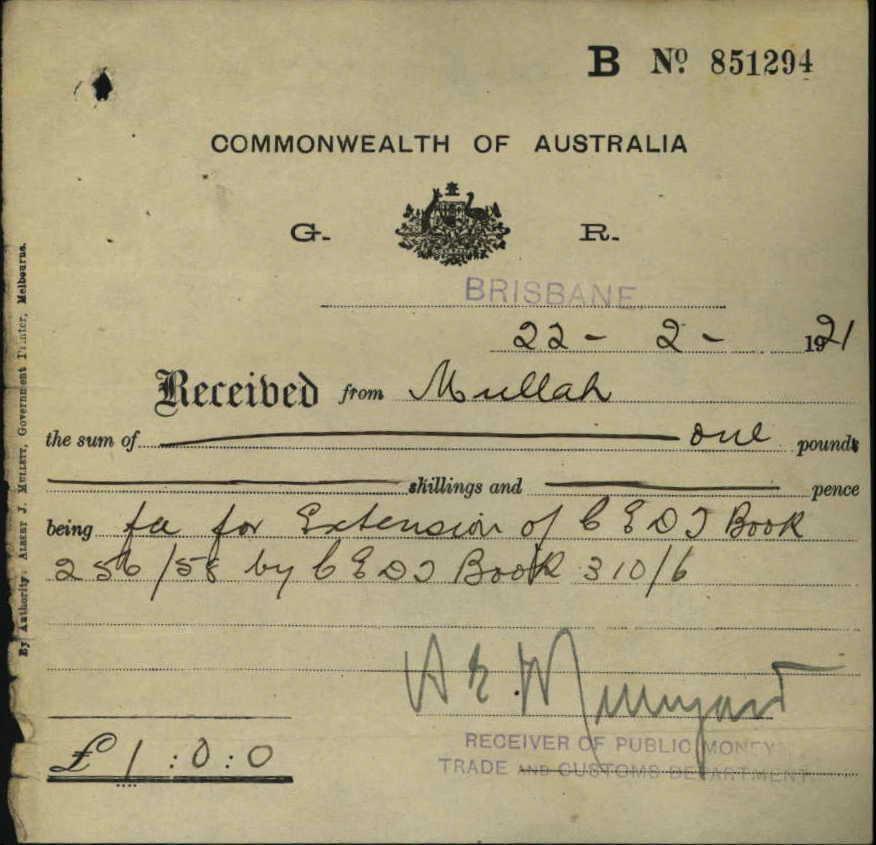 B Nº 851294
COMMONWEALTH OF AUSTRALIA
G. R.
BRISBANE
22 - 2 - 1921
Received from Mullah
the sum of one pounds
shillings and pence
being fee for Extension of C E D T Book
256/58 by C E D T Book 310/6
A E
£ 1 : 0 : 0
RECEIVER OF PUBLIC MONEY
TRADE AND CUSTOMS DEPARTMENT
By Authority: ALBERT J. MULLETT, Government Printer, Melbourne.